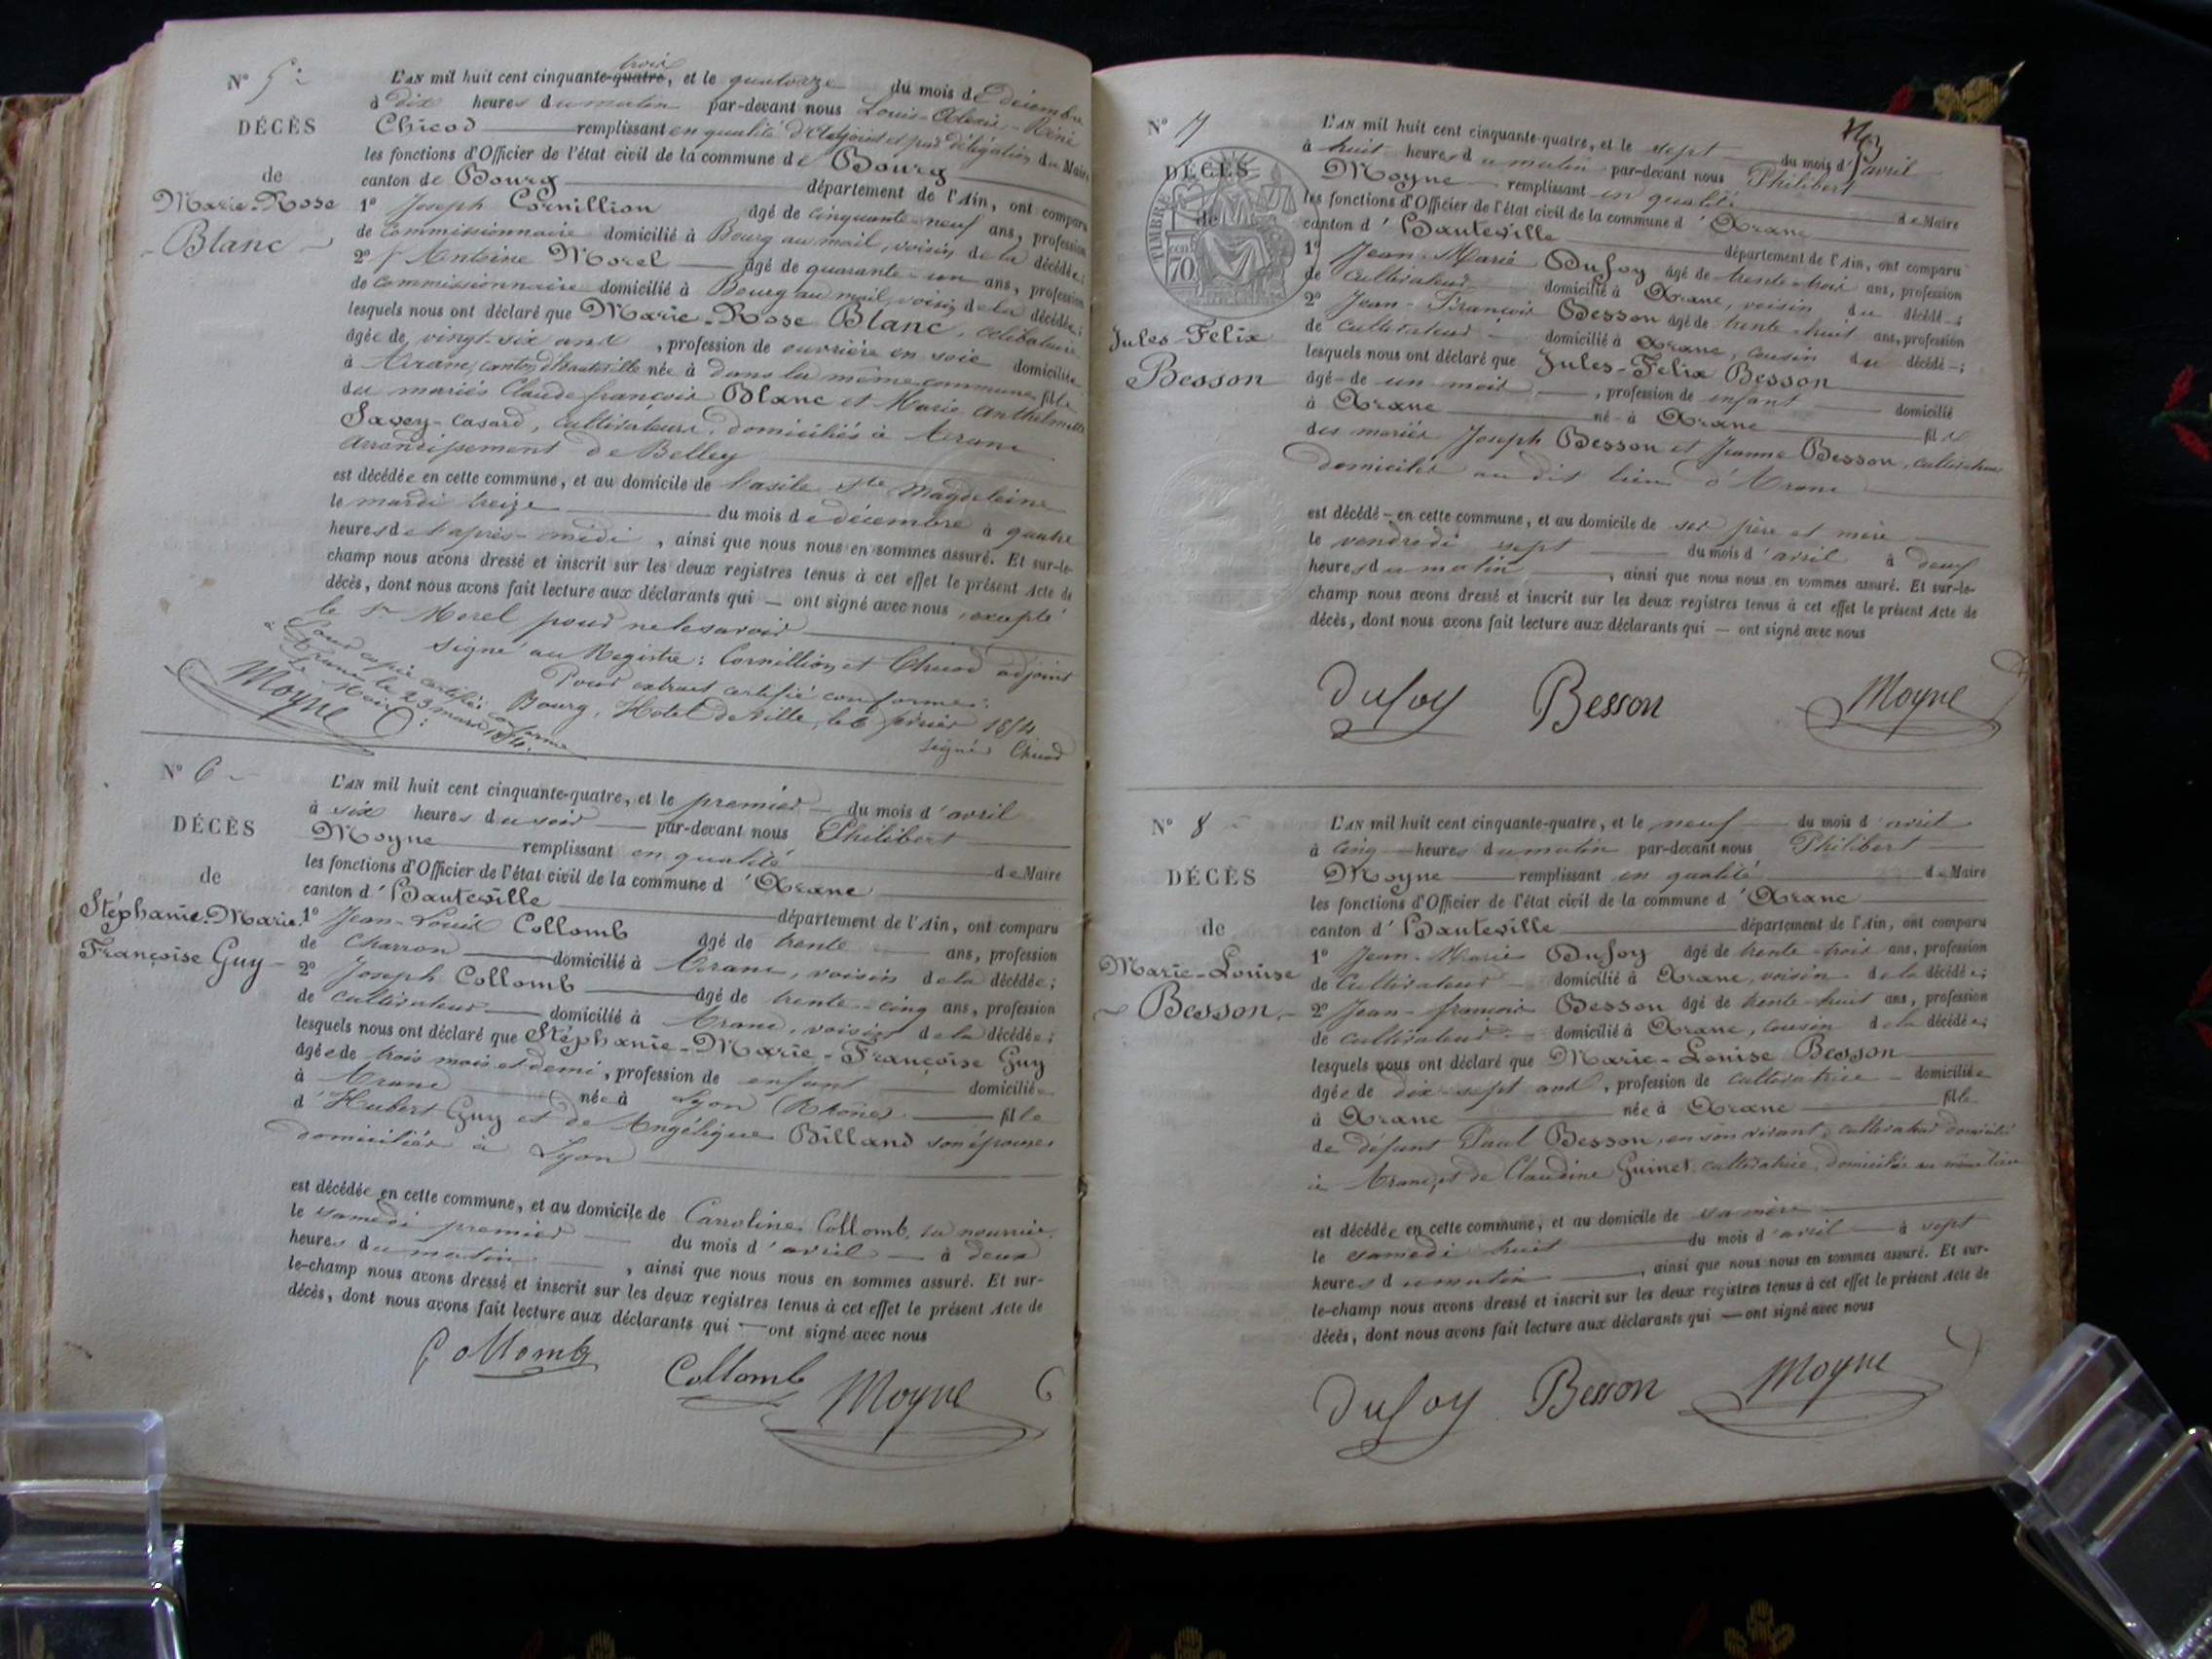 N° 5
DÉCÈS
de
Marie-Rose
Blanc
trois
L'AN mil huit cent cinquante-quatre, et le quatorze du mois de décembre
à dix heures du matin par-devant nous Louis-Alexis-Réné
Chicod remplissant en qualité d'Adjoint et par délégation du Maire
les fonctions d'Officier de l'état civil de la commune de Bourg
canton de Bourg département de l'Ain, ont comparu
1° Joseph Cornillion âgé de cinquante-neuf ans, profession
de Commissionnaire domicilié à Bourg au mail, voisin de la décédée;
2° Antoine Morel âgé de quarante-un ans, profession
de Commissionnaire domicilié à Bourg au mail, voisin de la décédée;
lesquels nous ont déclaré que Marie-Rose Blanc, célibataire
âgée de vingt-six ans, profession de ouvrière en soie domiciliée
à Aranc, canton d'hauteville née à dans la même commune, fille
des mariés Claude françois Blanc et Marie Anthelmette
Savey-Casard, cultivateurs, domiciliés à Aranc
arrondissement de Belley
est décédée en cette commune, et au domicile de l'asile Ste Magdeleine
le mardi treize du mois de décembre à quatre
heures de l'après-midi, ainsi que nous nous en sommes assuré. Et sur-le-
champ nous avons dressé et inscrit sur les deux registres tenus à cet effet le présent Acte de
décès, dont nous avons fait lecture aux déclarants qui — ont signé avec nous, excepté
le Sr Morel pour ne le savoir
Signé au Registre: Cornillion et Chicod adjoint
Pour extrait certifié conforme:
Bourg, Hotel de Ville, le 6 février 1854
Signé Chicod
Pour copie certifiée conforme
à Aranc le 23 mars 1854.
Le Maire:
Moyne
N° 6
DÉCÈS
de
Stéphanie-Marie
Françoise Guy
L'AN mil huit cent cinquante-quatre, et le premier du mois d'avril
à six heures du soir par-devant nous Philibert
Moyne remplissant en qualité de Maire
les fonctions d'Officier de l'état civil de la commune d'Aranc
canton d'Hauteville département de l'Ain, ont comparu
1° Jean-Louis Collomb âgé de trente ans, profession
de Charron domicilié à Aranc, voisin de la décédée;
2° Joseph Collomb âgé de trente-cinq ans, profession
de cultivateur domicilié à Aranc, voisin de la décédée;
lesquels nous ont déclaré que Stéphanie-Marie-Françoise Guy
âgée de trois mois et demi, profession de enfant domiciliée
à Aranc née à Lyon (Rhône) fille
d'Hubert Guy et de Angélique Billand son épouse
domiciliés à Lyon
est décédée en cette commune, et au domicile de Carroline Collomb, sa nourrice
le samedi premier du mois d'avril à deux
heures du matin, ainsi que nous nous en sommes assuré. Et sur-
le-champ nous avons dressé et inscrit sur les deux registres tenus à cet effet le présent Acte de
décès, dont nous avons fait lecture aux déclarants qui — ont signé avec nous
Collomb Collomb Moyne
N° 7
DÉCÈS
de
TIMBRE
70
Jules-Felix
Besson
L'AN mil huit cent cinquante-quatre, et le sept du mois d'avril
à huit heures du matin par-devant nous Philibert
Moyne remplissant en qualité de Maire
les fonctions d'Officier de l'état civil de la commune d'Aranc
canton d'Hauteville département de l'Ain, ont comparu
1° Jean-Marie Dufoy âgé de trente-trois ans, profession
de Cultivateur domicilié à Aranc, voisin du décédé;
2° Jean-François Besson âgé de trente-huit ans, profession
de cultivateur domicilié à Aranc, cousin du décédé;
lesquels nous ont déclaré que Jules-Felix Besson
âgé de un mois, profession de enfant domicilié
à Aranc né à Aranc fils
des mariés Joseph Besson et Jeanne Besson, cultivateurs
domiciliés au dit lieu d'Aranc
est décédé en cette commune, et au domicile de ses père et mère
le vendredi sept du mois d'avril à deux
heures du matin, ainsi que nous nous en sommes assuré. Et sur-le-
champ nous avons dressé et inscrit sur les deux registres tenus à cet effet le présent Acte de
décès, dont nous avons fait lecture aux déclarants qui — ont signé avec nous
Dufoy Besson Moyne
N° 8
DÉCÈS
de
Marie-Louise
Besson
L'AN mil huit cent cinquante-quatre, et le neuf du mois d'avril
à cinq heures du matin par-devant nous Philibert
Moyne remplissant en qualité de Maire
les fonctions d'Officier de l'état civil de la commune d'Aranc
canton d'Hauteville département de l'Ain, ont comparu
1° Jean-Marie Dufoy âgé de trente-trois ans, profession
de Cultivateur domicilié à Aranc, voisin de la décédée;
2° Jean-françois Besson âgé de trente-huit ans, profession
de cultivateur domicilié à Aranc, cousin de la décédée;
lesquels nous ont déclaré que Marie-Louise Besson
âgée de dix-sept ans, profession de cultivatrice domiciliée
à Aranc née à Aranc fille
de défunt Paul Besson, en son vivant, cultivateur domicilié
à Aranc, et de Claudine Guinet cultivatrice, domiciliée au même lieu
est décédée en cette commune, et au domicile de sa mère
le samedi huit du mois d'avril à sept
heures du matin, ainsi que nous nous en sommes assuré. Et sur-
le-champ nous avons dressé et inscrit sur les deux registres tenus à cet effet le présent Acte de
décès, dont nous avons fait lecture aux déclarants qui — ont signé avec nous
Dufoy Besson Moyne